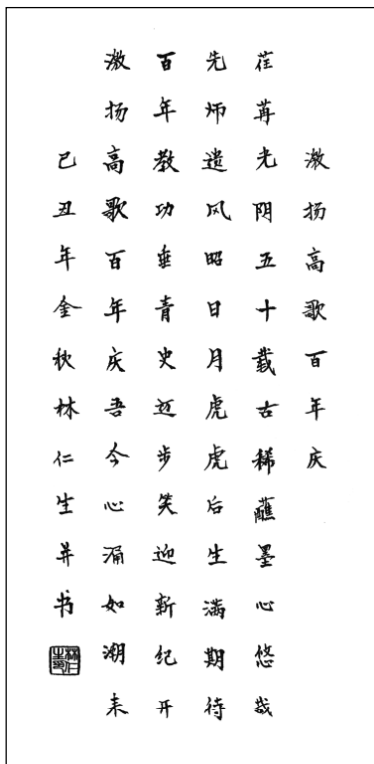 激扬高歌百年庆
荏苒光阴五十载古稀蘸墨心悠哉
先师遗风昭日月虎虎后生满期待
百年教功垂青史迈步笑迎新纪开
激扬高歌百年庆吾今心涌如潮来
己丑年金秋林仁生并书